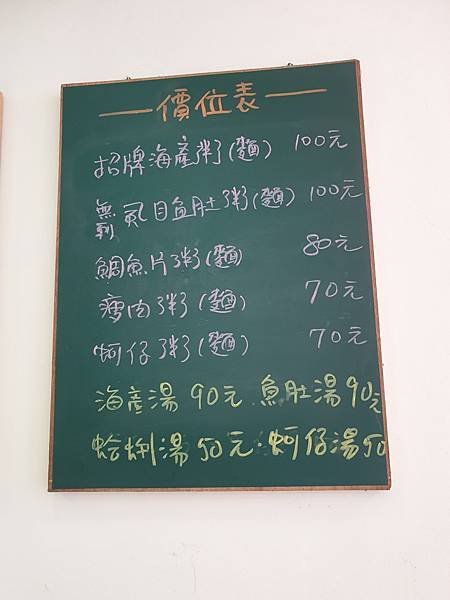 —價位表—
招牌海產粥(麵) 100元
無刺虱目魚肚粥(麵) 100元
鯛魚片粥(麵) 80元
瘦肉粥(麵) 70元
蚵仔粥(麵) 70元
海產湯 90元 魚肚湯 90元
蛤蜊湯 50元 蚵仔湯 50